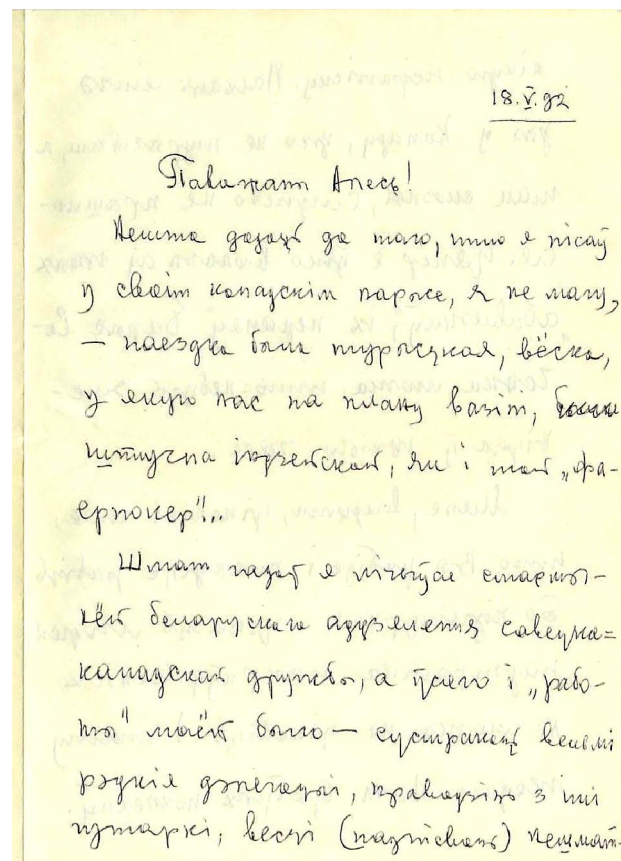 18.V.92
Паважаны Алесь!
Нешта дадаць да таго, што я пісаў
у сваім канадскім нарысе, я не магу,
— паездка была турысцкая, вёска,
у якую нас па плану вазілі, была
штучна індзейскай, як і той „фа-
ермокер"...
Шмат гадоў я лічыўся старшы-
нёй беларускага аддзялення савецка=
канадскай дружбы, а ўсяго і „рабо-
ты" маёй было — сустракаць вельмі
рэдкія дэлегацыі, праводзіць з імі
гутаркі, весці (падпісваць) нешмат-